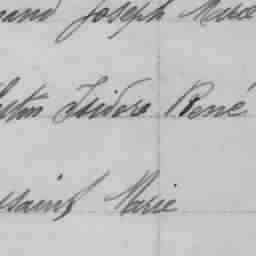 mand Joseph Marie
Isidore René
ssaint Marie